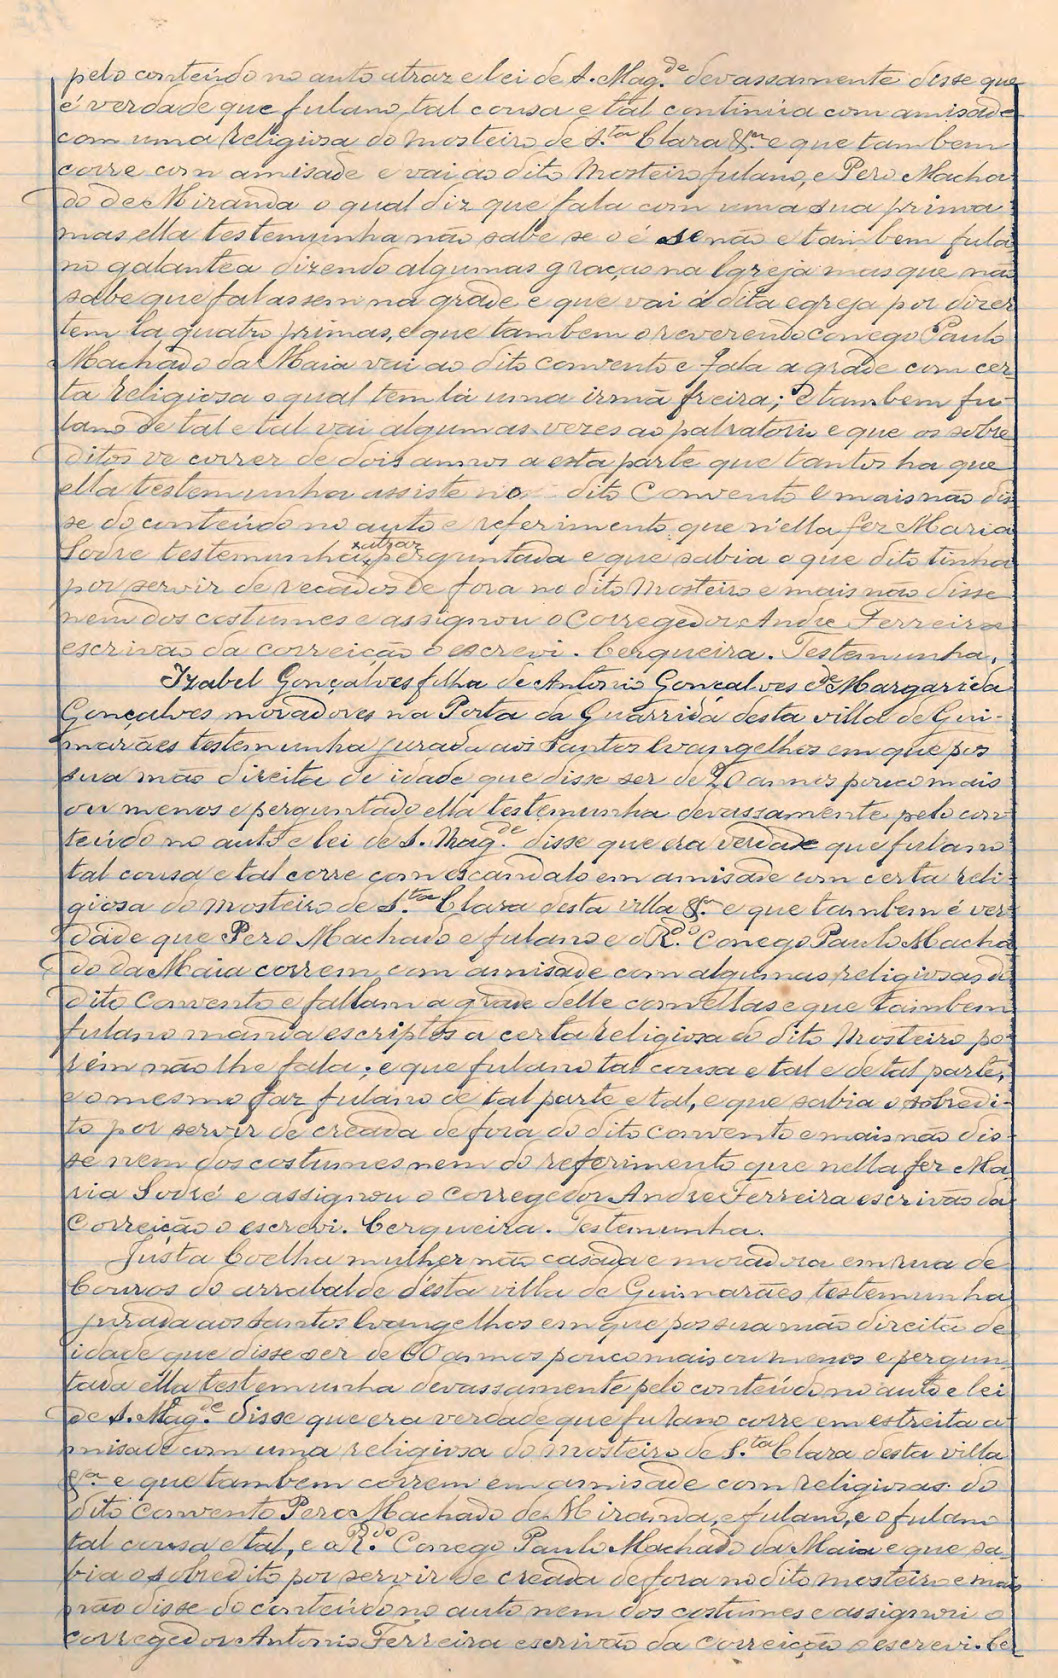 pelo conteúdo no auto atraz e lei de S. Mag.de devassamente disse que
é verdade que fulano, tal cousa e tal continúa com amisade
com uma religiosa do mosteiro de S.ta Clara &.ra e que tambem
corre com amisade e vai ao dito Mosteiro fulano, e Pero Macha
do de Miranda o qual diz que fala com uma sua prima
mas ella testemunha não sabe se o é se não e tambem fula
no galantêa dizendo algumas graças na Igreja mas que não
sabe que falassem na grade e que vai á dita egreja por dizer
tem la quatro primas, e que tambem o reverendo conego Paulo
Machado da Maia vai ao dito convento e fala a grade com cer
ta religiosa o qual tem lá uma irmã freira; E tambem fu-
lano de tal e tal vai algumas vezes ao palratorio e que os sobre
ditos ve correr de dois annos a esta parte que tantos ha que
ella testemunha assiste no dito Convento E mais não dis
se do conteúdo no auto e referimento que n'ella fez Maria
Sodre testemunha atraz perguntada e que sabia o que dito tinha
por servir de recados de fora no dito Mosteiro e mais não disse
nem dos costumes e assignou o Corregedor Andre Ferreira
escrivão da correição o escrevi. Cerqueira. Testemunha.
Izabel Gonçalves filha de Antonio Gonçalves e de Margarida
Gonçalves moradores na Porta da Guarrida desta villa de Gui-
marães testemunha jurada aos Santos Evangelhos em que pos
sua mão direita de idade que disse ser de 20 annos pouco mais
ou menos e perguntado ella testemunha devassamente pelo con
teúdo no auto e lei de S. Mag.de disse que era verdade que fulano
tal cousa e tal corre com escandalo em amisade com certa reli-
giosa do mosteiro de S.ta Clara desta villa &.ra e que tambem é ver
dade que Pero Machado e fulano e o R.do Conego Paulo Macha
do da Maia correm com amisade com algumas religiosas do
dito Convento e fallam a grade delle com ellas e que tambem
fulano manda escriptos a certa religiosa do dito Mosteiro po-
rém não lhe fala; e que fulano tal cousa e tal e de tal parte,
e o mesmo faz fulano de tal parte e tal, e que sabia o sobredi-
to por servir de creada de fora do dito convento e mais não dis-
se nem dos costumes nem do referimento que nella fez Ma
ria Sodré e assignou o Corregedor Andre Ferreira escrivão da
Correição o escrevi. Cerqueira. Testemunha.
Justa Coelha mulher não casada e moradora em rua de
Couros do arrabalde désta villa de Guimarães testemunha
jurada aos Santos Evangelhos em que pos sua mão direita de
idade que disse ser de 60 annos pouco mais ou menos e pergun
tada ella testemunha devassamente pelo conteúdo no auto e lei
de S. Mag.de disse que era verdade que fulano corre em estreita a-
misade com uma religiosa do mosteiro de S.ta Clara desta villa
&.ra e que tambem correm em amisade com religiosas do
dito Convento Pero Machado de Miranda, e fulano, e o fulano
tal cousa e tal, e o R.do Conego Paulo Machado da Maia e que sa-
bia o sobredito por servir de creada de fora no dito mosteiro e mais
não disse do conteúdo no auto nem dos costumes e assignou o
corregedor Antonio Ferreira escrivão da correicção o escrevi. Cer